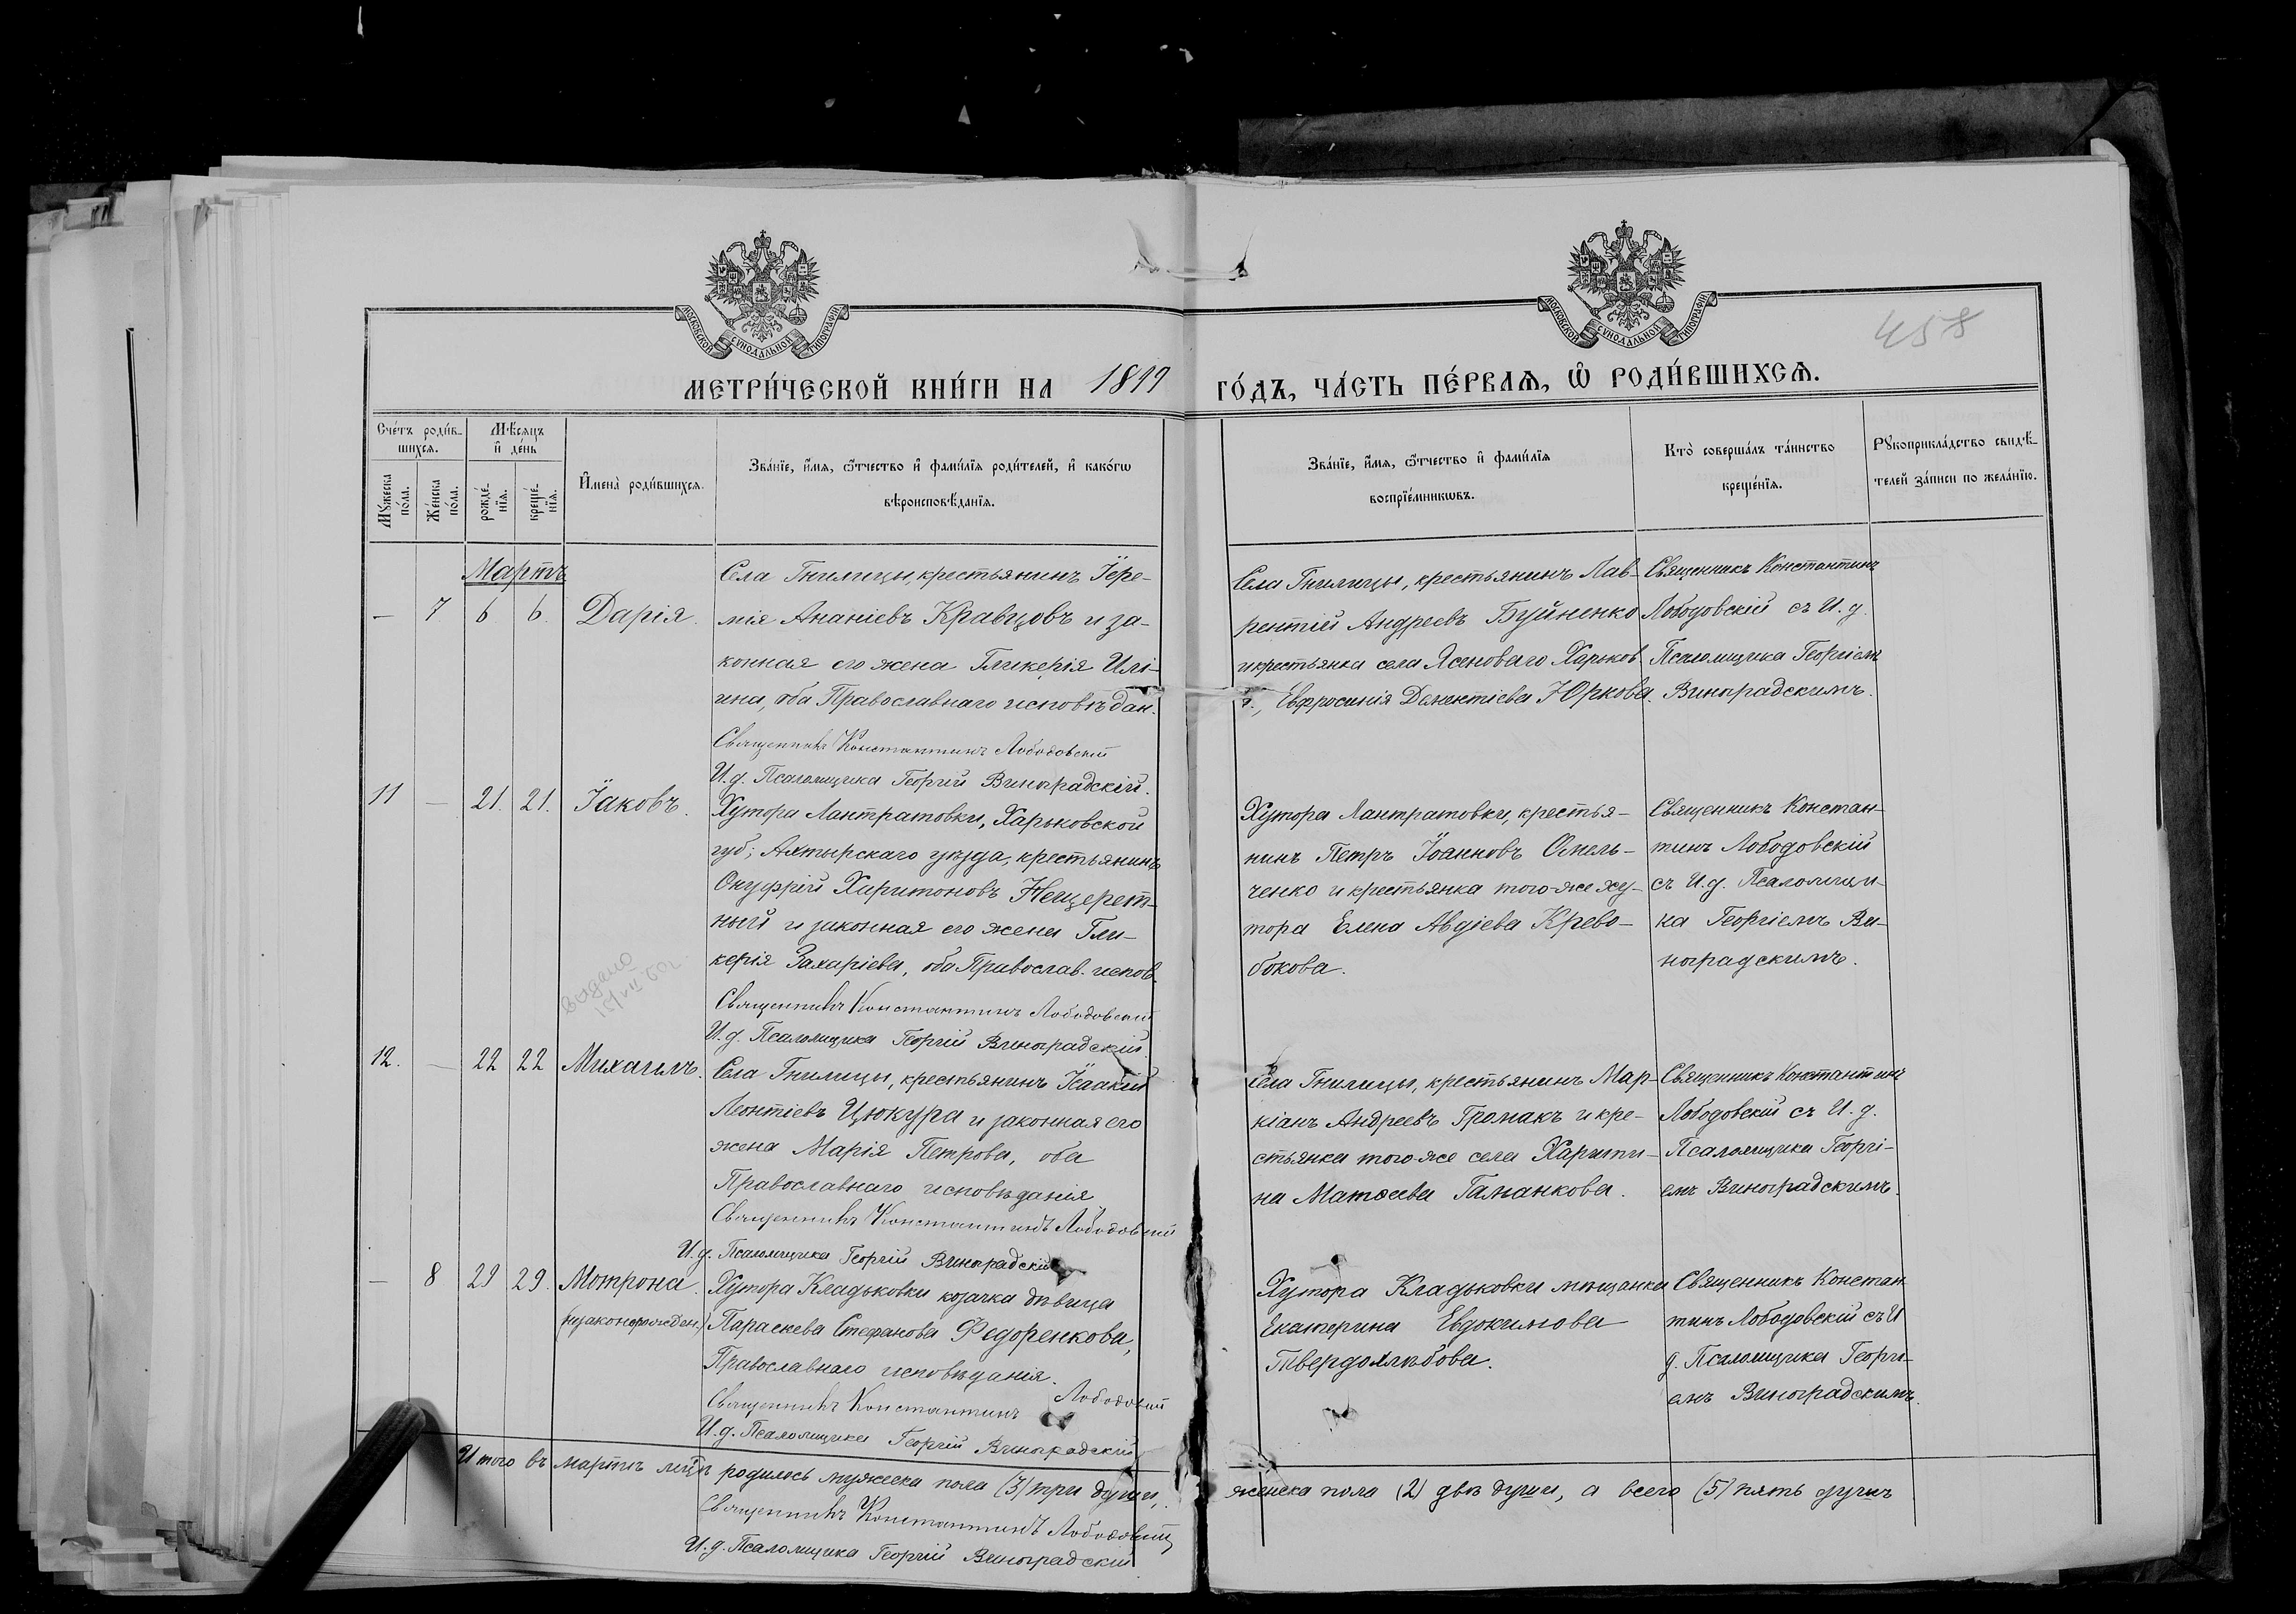 МОСКОВСКОЙ СУНОДАЛЬНОЙ ТИПОГРАФІИ
МОСКОВСКОЙ СУНОДАЛЬНОЙ ТИПОГРАФІИ
458
МЕТРИ́ЧЕСКОЙ КНИ́ГИ НА 1899 ГО́ДЪ, ЧА́СТЬ ПЕ́РВАѦ, Ѡ҆ РОДИ́ВШИХСѦ.
Сче́тъ роди́в-
шихсѧ.
Мѣ́сяцъ
и҆ де́нь
Мꙋ́жеска по́ла.
Же́нска по́ла.
рожде́-
нїѧ.
креще́-
нїѧ.
И҆мена̀ роди́вшихсѧ.
Зва́нїе, и҆́мѧ, ѻ҆́тчество и҆ фами́лїѧ роди́телей, и҆ како́гѡ
вѣроисповѣ́данїѧ.
Зва́нїе, и҆́мѧ, ѻ҆́тчество и҆ фами́лїѧ
воспрїе́мникѡвъ.
Кто̀ соверша́лъ та́инство
креще́нїѧ.
Рꙋкоприкла́дство свидѣ́-
телей за́писи по жела́нїю.
Мартъ
— 7 6 6. Дарія.
Села Гнилицы, крестьянинъ Іере-
мія Ананіевъ Кравцовъ и за-
конная его жена Гликерія Илі-
ина, оба Православнаго исповѣдан.
Священникъ Константинъ Лободовскій
И.д. Псаломщика Георгій Виноградскій.
Села Гнилицы, крестьянинъ Лав-
рентій Андреевъ Буйненко
и крестьянка села Ясеноваго Харьков
г., Евфросинія Дементіева Юркова.
Священникъ Константинъ
Лободовскій съ И.д.
Псаломщика Георгіемъ
Виноградскимъ.
11 — 21. 21. Іаковъ.
Хутора Лантратовки, Харьковской
губ; Ахтырскаго уѣзда, крестьянинъ
Онуфрій Харитоновъ Нещерет-
ный и законная его жена Гли-
керія Захаріева, оба Православ. испов.
Священникъ Константинъ Лободовскій
И.д. Псаломщика Георгій Виноградскій.
Хутора Лантратовки, крестья-
нинъ Петръ Іоанновъ Омель-
ченко и крестьянка того-же ху-
тора Елена Авдіева Крево-
бокова.
Священникъ Констан-
тинъ Лободовскій
съ И.д. Псаломщи-
ка Георгіемъ Ви-
ноградскимъ.
Выдано
12. — 22 22 Михаилъ.
Села Гнилицы, крестьянинъ Ісаакій
Леонтіевъ Цюкура и законная его
жена Марія Петрова, оба
Православнаго исповѣданія
Священникъ Константинъ Лободовскій
И.д. Псаломщика Георгій Виноградскій
Села Гнилицы, крестьянинъ Мар-
кіанъ Андреевъ Громакъ и кре-
стьянка того-же села Харити-
на Матѳеева Гаманкова.
Священникъ Константинъ
Лободовскій съ И.д.
Псаломщика Георгі-
емъ Виноградскимъ.
— 8 29 29. Мотрона.
(незаконорожден.)
Хутора Кладьковки козачка дѣвица
Параскева Стефанова Федоренкова,
Православнаго исповѣданія.
Священникъ Константинъ Лободовскій
И.д. Псаломщика Георгій Виноградскій
Хутора Кладьковки мѣщанка
Екатерина Евдокимова
Твердохлѣбова.
Священникъ Констан
тинъ Лободовскій съ И
д. Псаломщика Георгі-
емъ Виноградскимъ.
Итого въ мартѣ мцѣ родилось мужеска пола (3) три души, женска пола (2) двѣ души, а всего (5) пять душъ
Священникъ Константинъ Лободовскій
И.д. Псаломщика Георгій Виноградскій